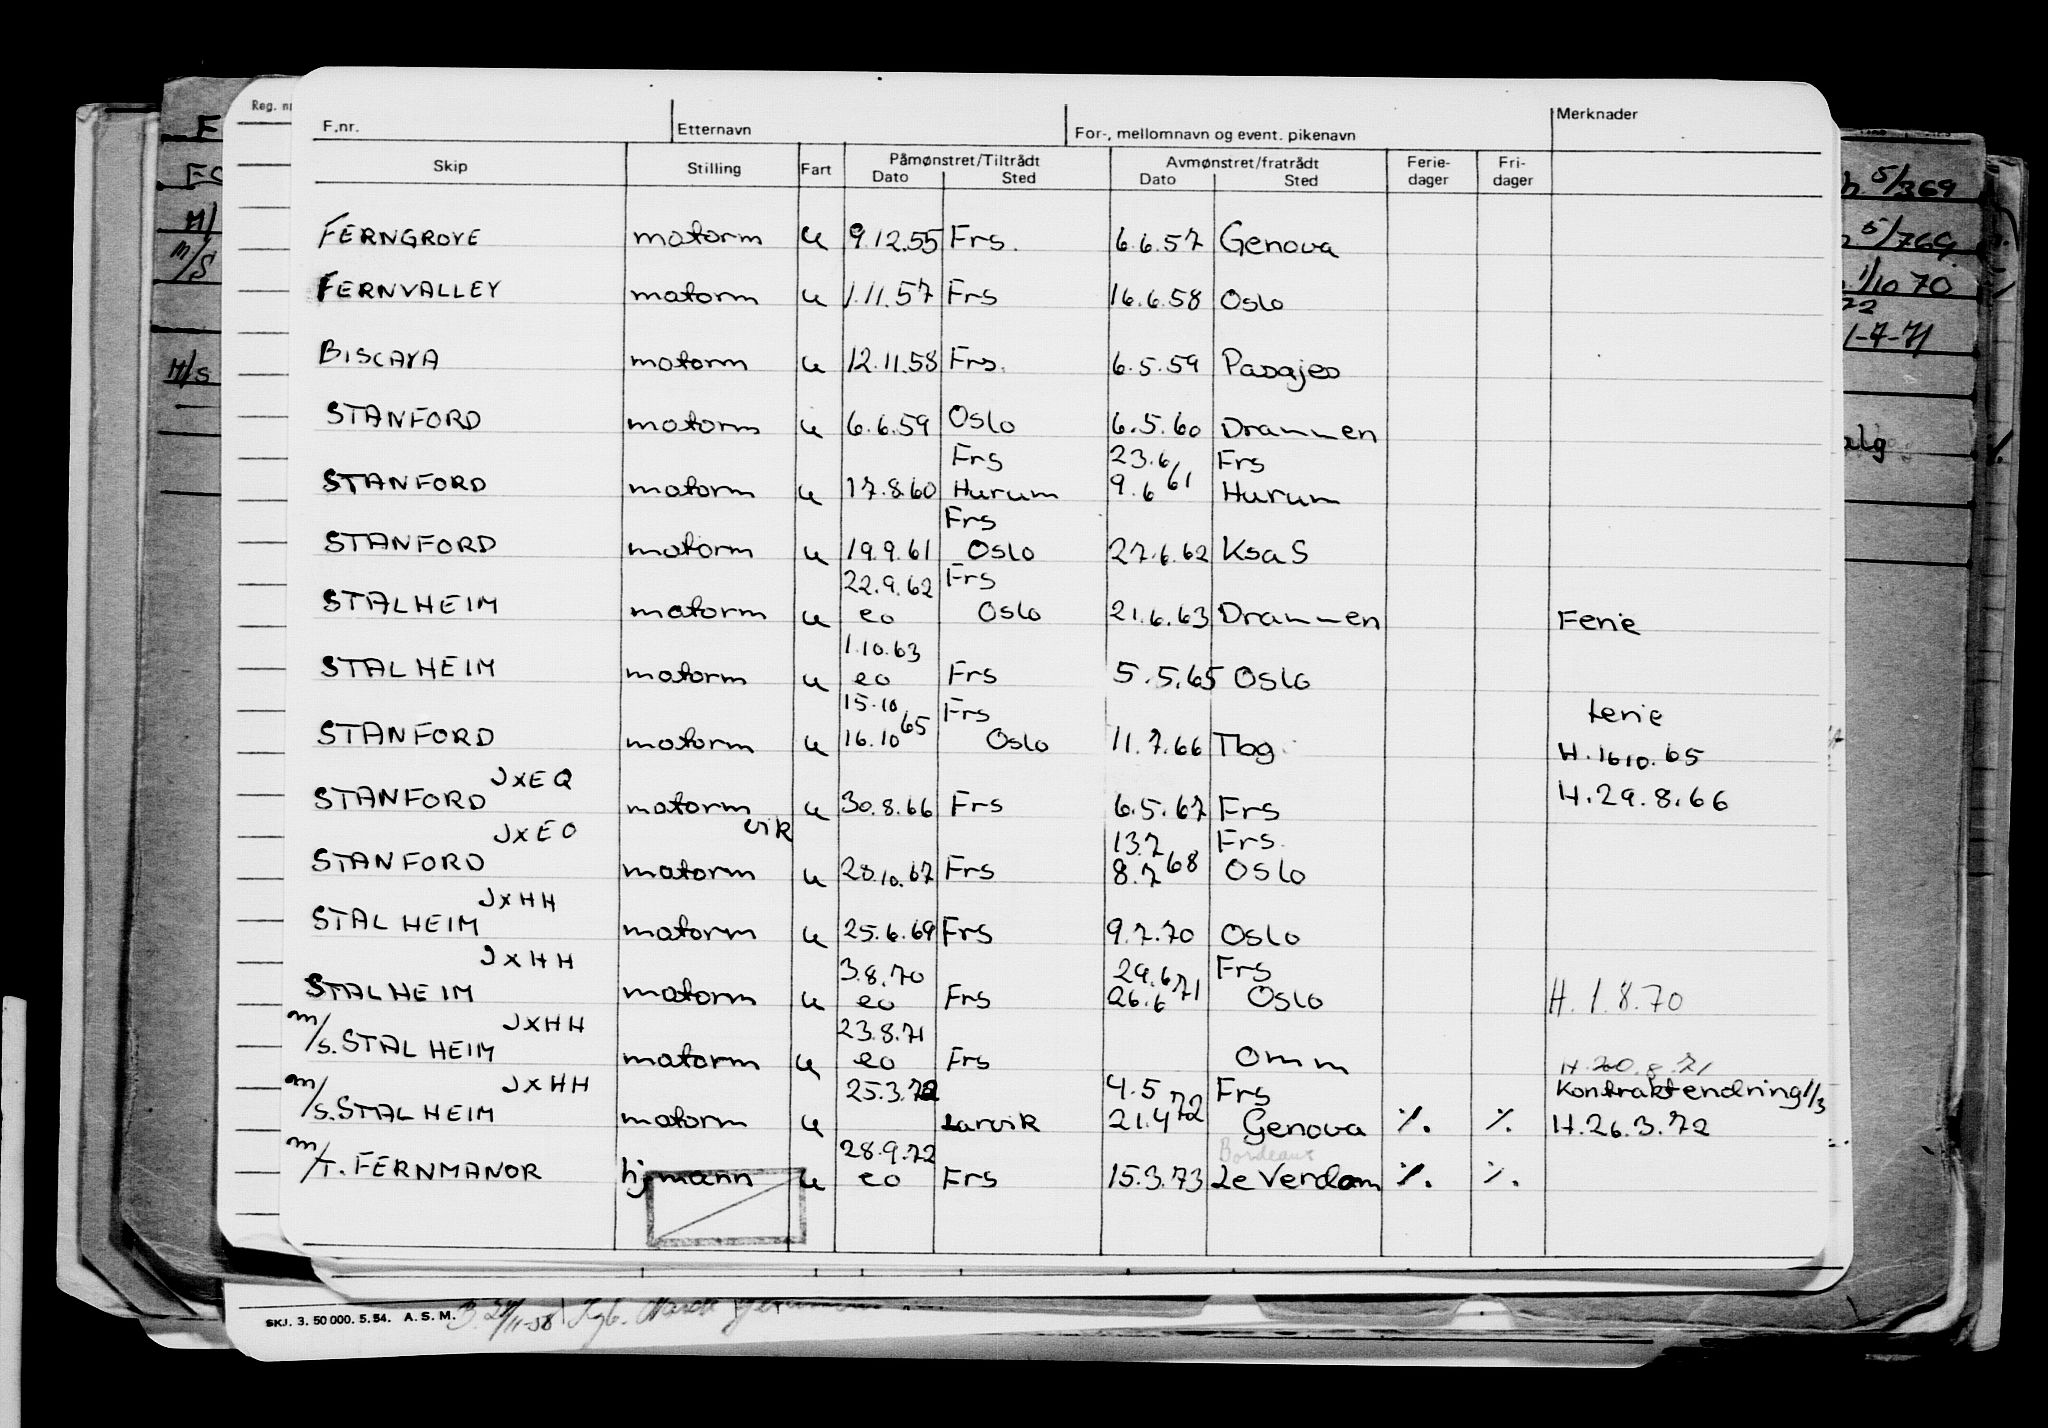 Reg. nr
F.nr. Etternavn For-, mellomnavn og event. pikenavn Merknader
Skip Stilling Fart Påmønstret/Tiltrådt Avmønstret/fratrådt Ferie-dager Fri-dager
Dato Sted Dato Sted
FERNGROVE motorm u 9.12.55 Frs. 6.6.57 Genova
FERNVALLEY motorm u 1.11.57 Frs 16.6.58 Oslo
BISCAYA motorm u 12.11.58 Frs. 6.5.59 Pasajes
STANFORD motorm u 6.6.59 Oslo 6.5.60 Drammen
Frs 23.6 Frs
STANFORD motorm u 17.8.60 Hurum 9.6 61 Hurum
Frs
STANFORD motorm u 19.9.61 Oslo 27.6.62 KsaS
22.9.62 Frs
STALHEIM motorm u eo Oslo 21.6.63 Drammen Ferie
1.10.63
STALHEIM motorm u eo Frs 5.5.65 Oslo
15.10 Frs ferie
STANFORD motorm u 16.10 65 Oslo 11.7.66 Tbg H.16.10.65
JXEQ
STANFORD motorm u 30.8.66 Frs 6.5.67 Frs H.29.8.66
JXEO vik 13.7 Frs.
STANFORD motorm u 28.10.67 Frs 8.7 68 Oslo
JXHH
STALHEIM motorm u 25.6.69 Frs 9.7.70 Oslo
JXHH 3.8.70 29.6 Frs
STALHEIM motorm u eo Frs 26.6 71 Oslo H. 1.8.70
JXHH 23.8.71
m/s. STALHEIM motorm u eo Frs Omm H.20.8.71
JXHH 25.3.72 4.5 Frs Kontraktendring 1/3
m/s. STALHEIM motorm u Larvik 21.4 72 Genova %. %. H.26.3.72
28.9.72 Bordeaux
m/T. FERNMANOR hjmann u eo Frs 15.3.73 Le Verdom %. %.
SKJ. 3. 50 000. 5. 54. A. S. M.
5/369
5/769
1/10 70
22
1-7-71
alg
M/
M/S
M/s